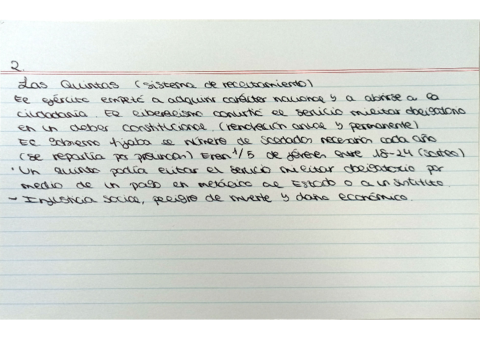 2.
Las Quintas (sistema de reclutamiento)
El ejército empezó a adquirir carácter nacional y a abrirse a la
ciudadanía. El liberalismo convirtió el servicio militar obligatorio
en un deber constitucional. (renovación anual y permanente)
El gobierno fijaba el número de soldados necesarios cada año
(se repartía por provincias) Eran 1/5 de jóvenes entre 18-24 (sorteo)
· Un quinto podía evitar el servicio militar obligatorio por
medio de un pago en metálico al Estado o a un sustituto.
- Injusticia social, peligro de muerte y daño económico.